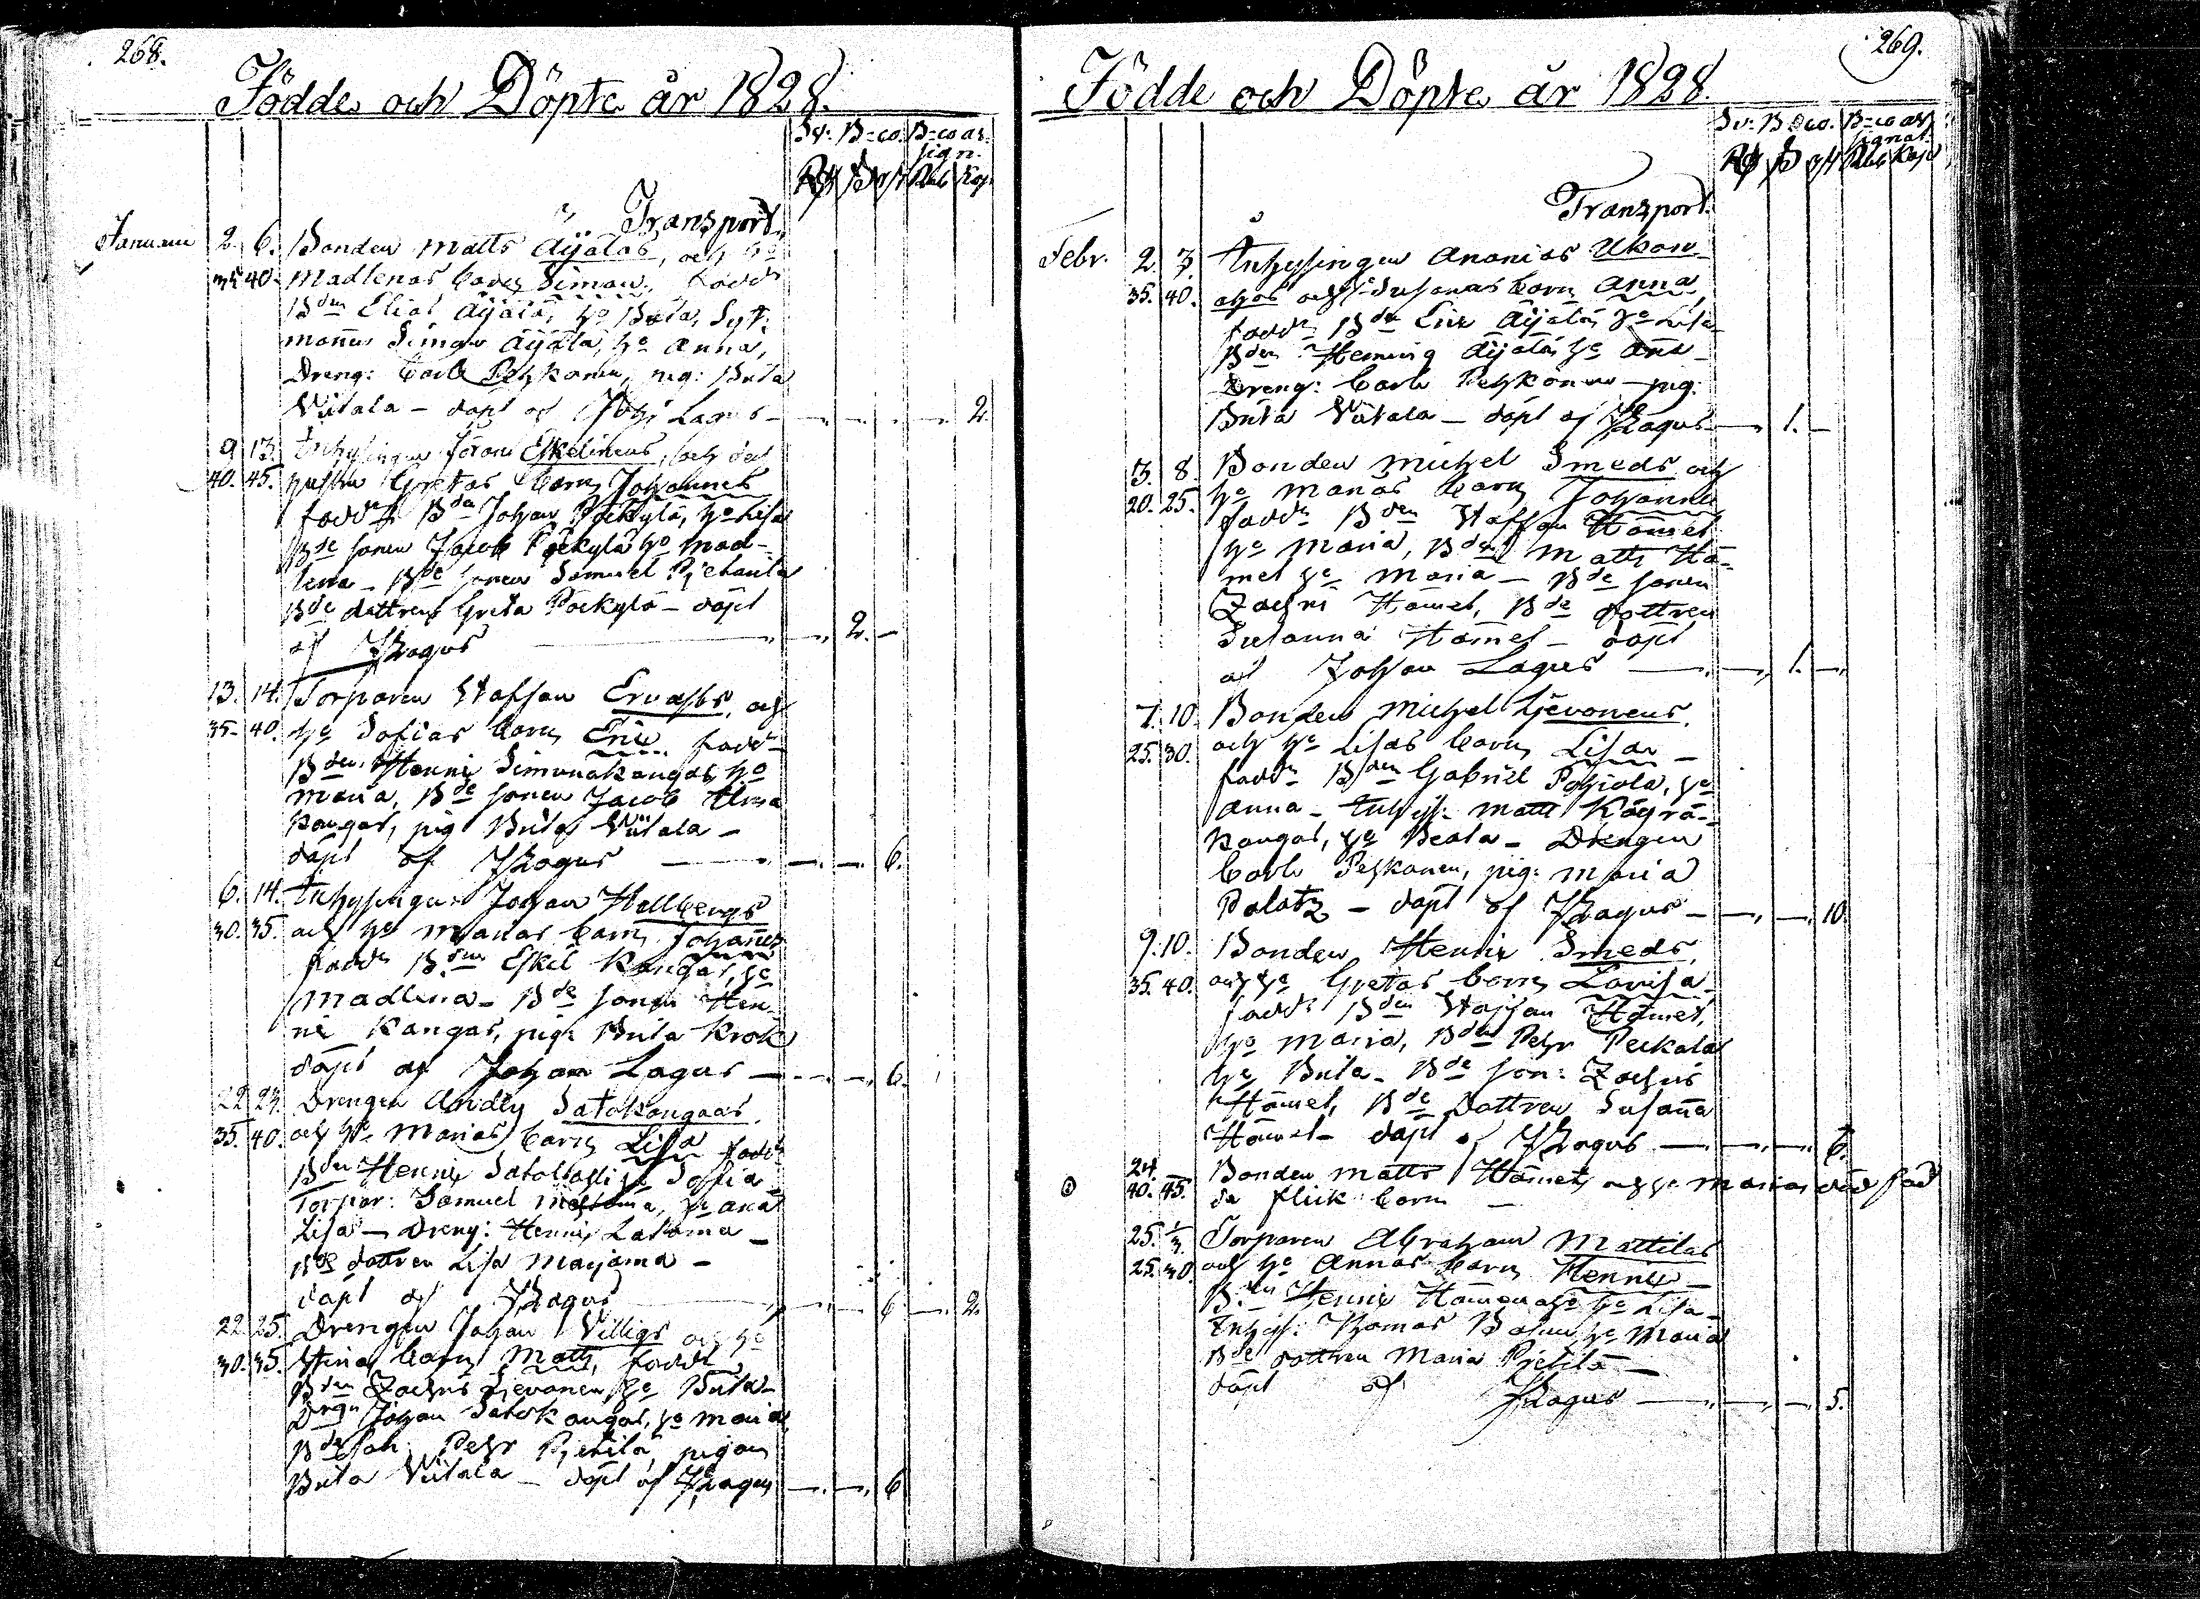 268.
Födde och Döpte år 1828.
Sv: B-co. B-co as
sign.
Rub Kop
Transport.
Januari 2. 6. Bonden Matts Äijälas, och h:o
35 40. Madlenas barn Simon, fadd:
B:den Elias Äijälä, h:o Brita, Syt:
mannen Simon Äijälä, h:o Anna,
Dreng: Carl Pehkonen, pig: Brita
Viitala - döpt af Joh: Lagus 2.
9 13. Inhysingen Jöran Eskelinens, och dess
40. 45. hustru Gretas barn Johannes
fadd: B:den Johan Pöckylä, h:o Lisa
B:de sonen Jacob Pöckylä h:o Mad-
lena - B:de sonen Samuel
B:de dottren Greta Pöckylä - döpt
af JLagus 2. -
13. 14. Torparen Staffan Ervasts, och
35- 40. h:o Sofias barn Eric fadd:
B:den Henric Simunakangas h:o
Maria, B:de sonen Jacob
kangas, pig Brita Viitala -
döpt af JLagus 6.
6. 14. Inhysingen Johan Hallbergs
30. 35. och h:o Marias barn Johannes
fadd: B:den Eskil Kangas, h:o
Madlena - B:de sonen Hen-
ric Kangas, pig: Brita Krok
döpt af Johan Lagus - 6.
22 23. Drengen Anders Satokangaas,
35. 40. och h:o Marias barn Lisa fadd:
B:den Henric h:o Sofia
Torpar: Samuel h:o Ana
Lisa - Dreng: Henric Lakoma -
B:de dottren Lisa Marjoma -
döpt af JLagus 6 2.
22. 25. Drengen Johan Villigs och h:o
30. 35. Stinas barn Matts, fadd:
B:den Zachris Ljevonen, h:o Brita -
Dreng Johan Satokangas, h:o Maria
B:de son: Pehr Pjetilä, pigan
Brita Viitala - döpt af JLagus 6
269.
Födde och Döpte år 1828.
Sv: B-co. B-co as
signat.
Rub Kop
Transport.
Febr. 2. 7. Inhysingen Ananias Ukon-
35. 40. ahos och h:o Susanas barn Anna,
fadd: B:den Eric Äijälä, h:o Lisa
B:den Hemmig Äijälä h:o Ana -
Dreng: Carl Pehkonen - pig:
Brita Viitala - döpt af JLagus 1. -
3. 8. Bonden Michel Smeds och
20. 25. h:o Marias barn Johannes
fadd: B:den Staffan Hämet
h:o Maria, B:den Matts Hä-
met h:o Maria - B:de sonen
Zachris Hämet, B:de dottren
Susanna Hämet - döpt
af Johan Lagus 1. -
7. 10. Bonden Michel Ljevonens,
25. 30. och h:o Lisas barn Lisa -
fadd: B:den Gabriel Pohjola, h:o
Anna - Inhys: Matts Käyrä-
kangas, h:o Beata - Drengen
Carl Pehkonen, pig: Maria
Palatz - döpt af JLagus - 10.
9. 10. Bonden Henric Smeds,
35. 40. och h:o Gretas barn Lovisa
fadd: B:den Staffan Hämet,
h:o Maria, B:den Pehr Peckala
h:o Brita - B:de son: Zachris
Hämet, B:de dottren Susana
Hämet - döpt af JLagus 6.
24.
40. 45. Bonden Matts Hämets och h:o Marias död född
flick barn -
25. 1/3. Torparen Abraham Mattilas
25. 30. och h:o Annas barn Henric -
B:den Henric h:o Lisa -
Inhys: Thomas h:o Maria
B:de dottren Maria Pjetilä -
döpt af JLagus 5.